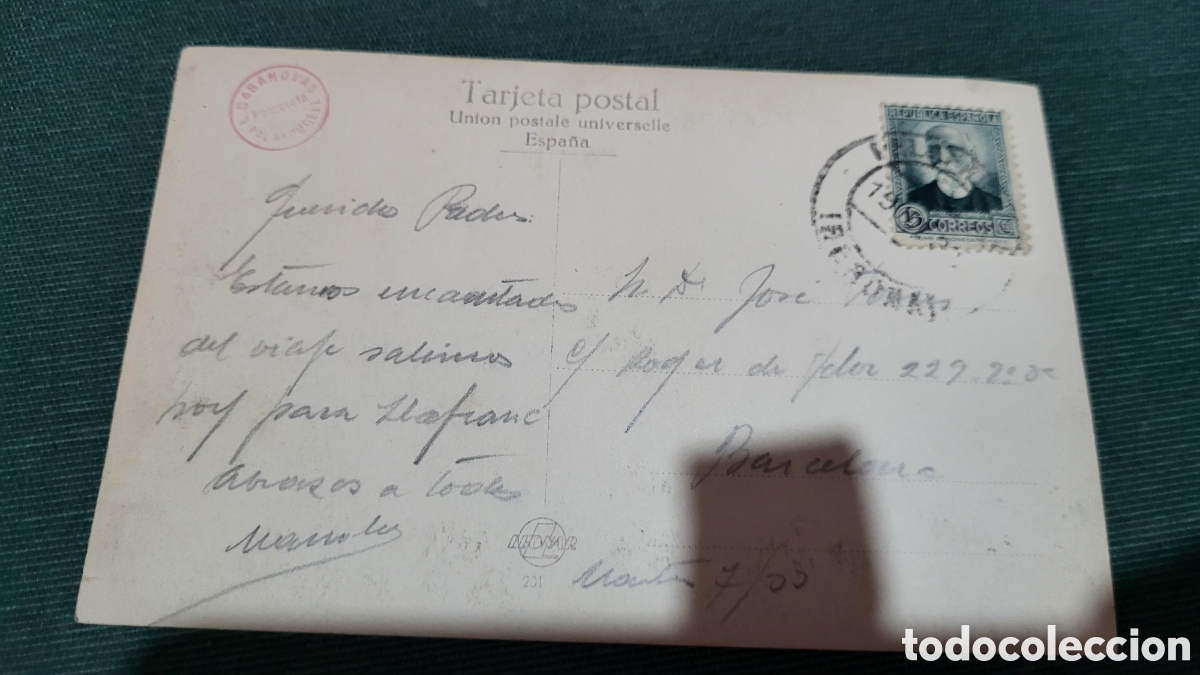 CABANOVAS
Fotografo
Tarjeta postal
Union postale universelle
España
REPUBLICA ESPAÑOLA
15 CORREOS
Querido Padres:
Estamos encantados
del viaje salimos
hoy para Llafranc
Abrazos a Todos
Sr. D. José
c/ Roger de Flor 229 2º
Barcelona
Martes 7/
LEYJAR
201
todocoleccion